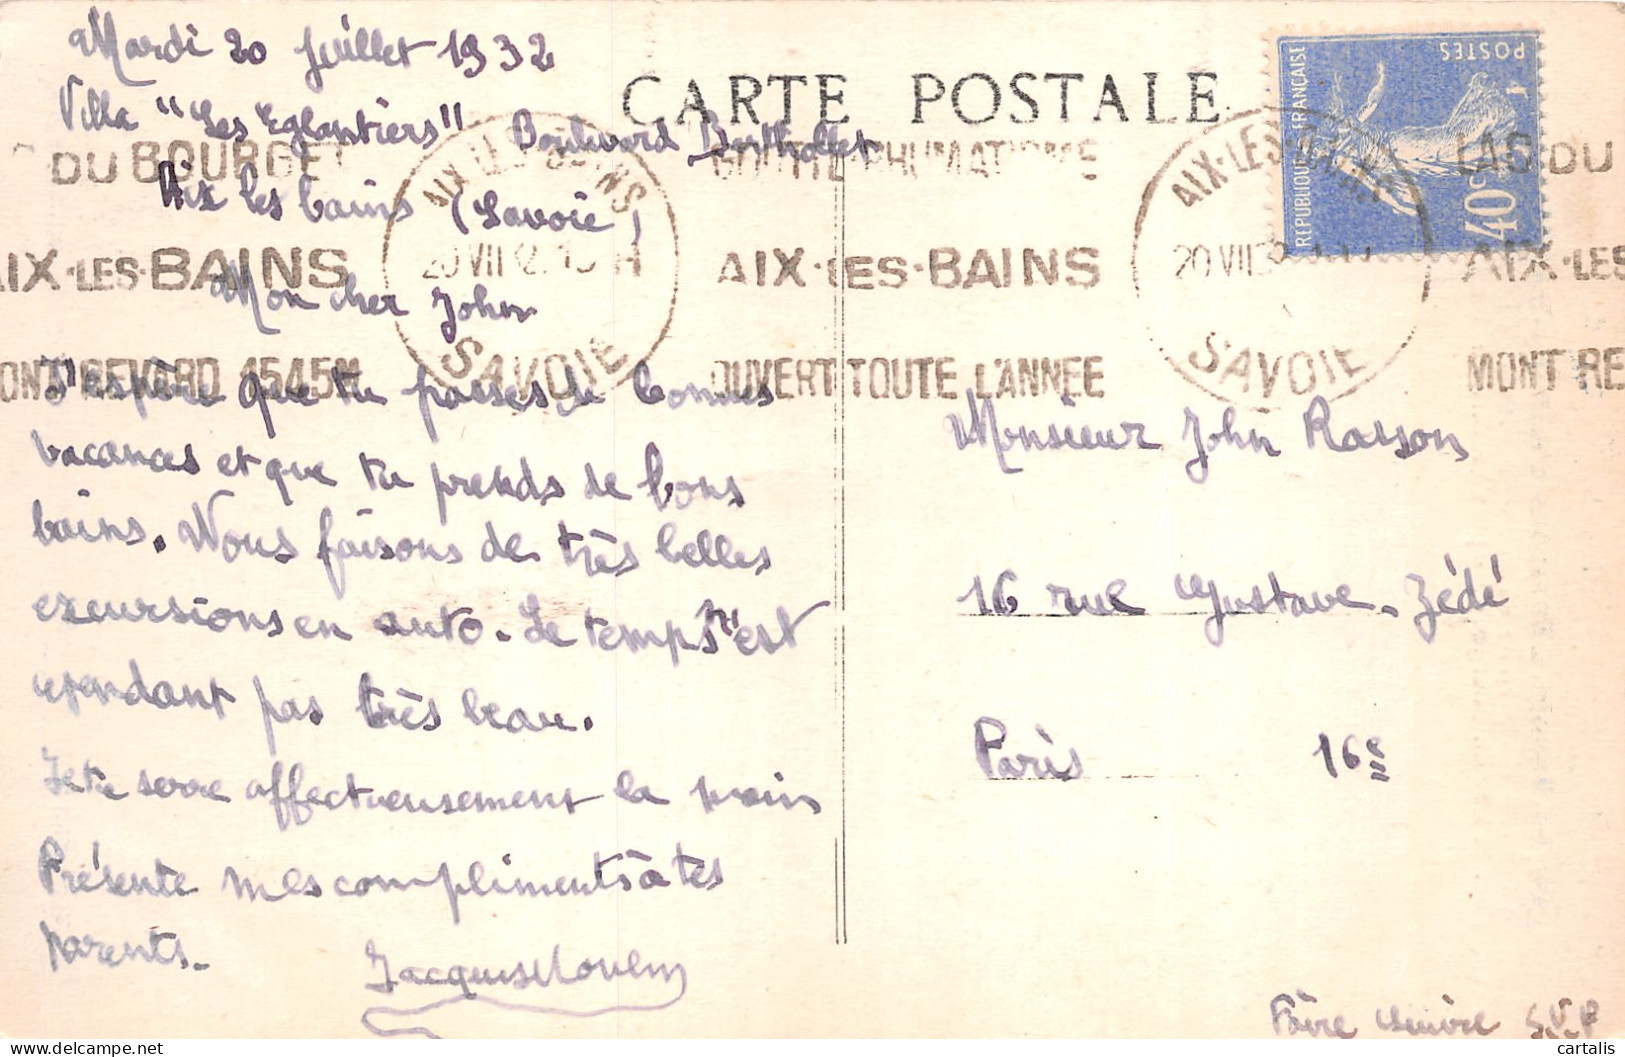 Mardi 20 Juillet 1932
Villa "Les Eglantiers" Boulevard Berthollet
Aix les bains (Savoie)
Mon cher John
J'espère que tu passes de bonnes
vacances et que tu prends de bons
bains. Nous faisons de très belles
excursions en auto. Le temps n'est
cependant pas très beau.
Je te serre affectueusement la main
Présente mes compliments à tes
parents.
Jacques
CARTE POSTALE
REPUBLIQUE FRANÇAISE
POSTES
40c
DU BOURGET
AIX-LES-BAINS
MONT REVARD 1545M
AIX-LES-BAINS
20 VII 32
SAVOIE
GOUTTE RHUMATISME
AIX-LES-BAINS
OUVERT TOUTE L'ANNÉE
AIX-LES-BAINS
20 VII 32
SAVOIE
LAC DU
AIX-LES
MONT RE
Monsieur John Rasson
16 rue Gustave. Zédé
Paris 16e
Faire suivre S.V.P
cartalis